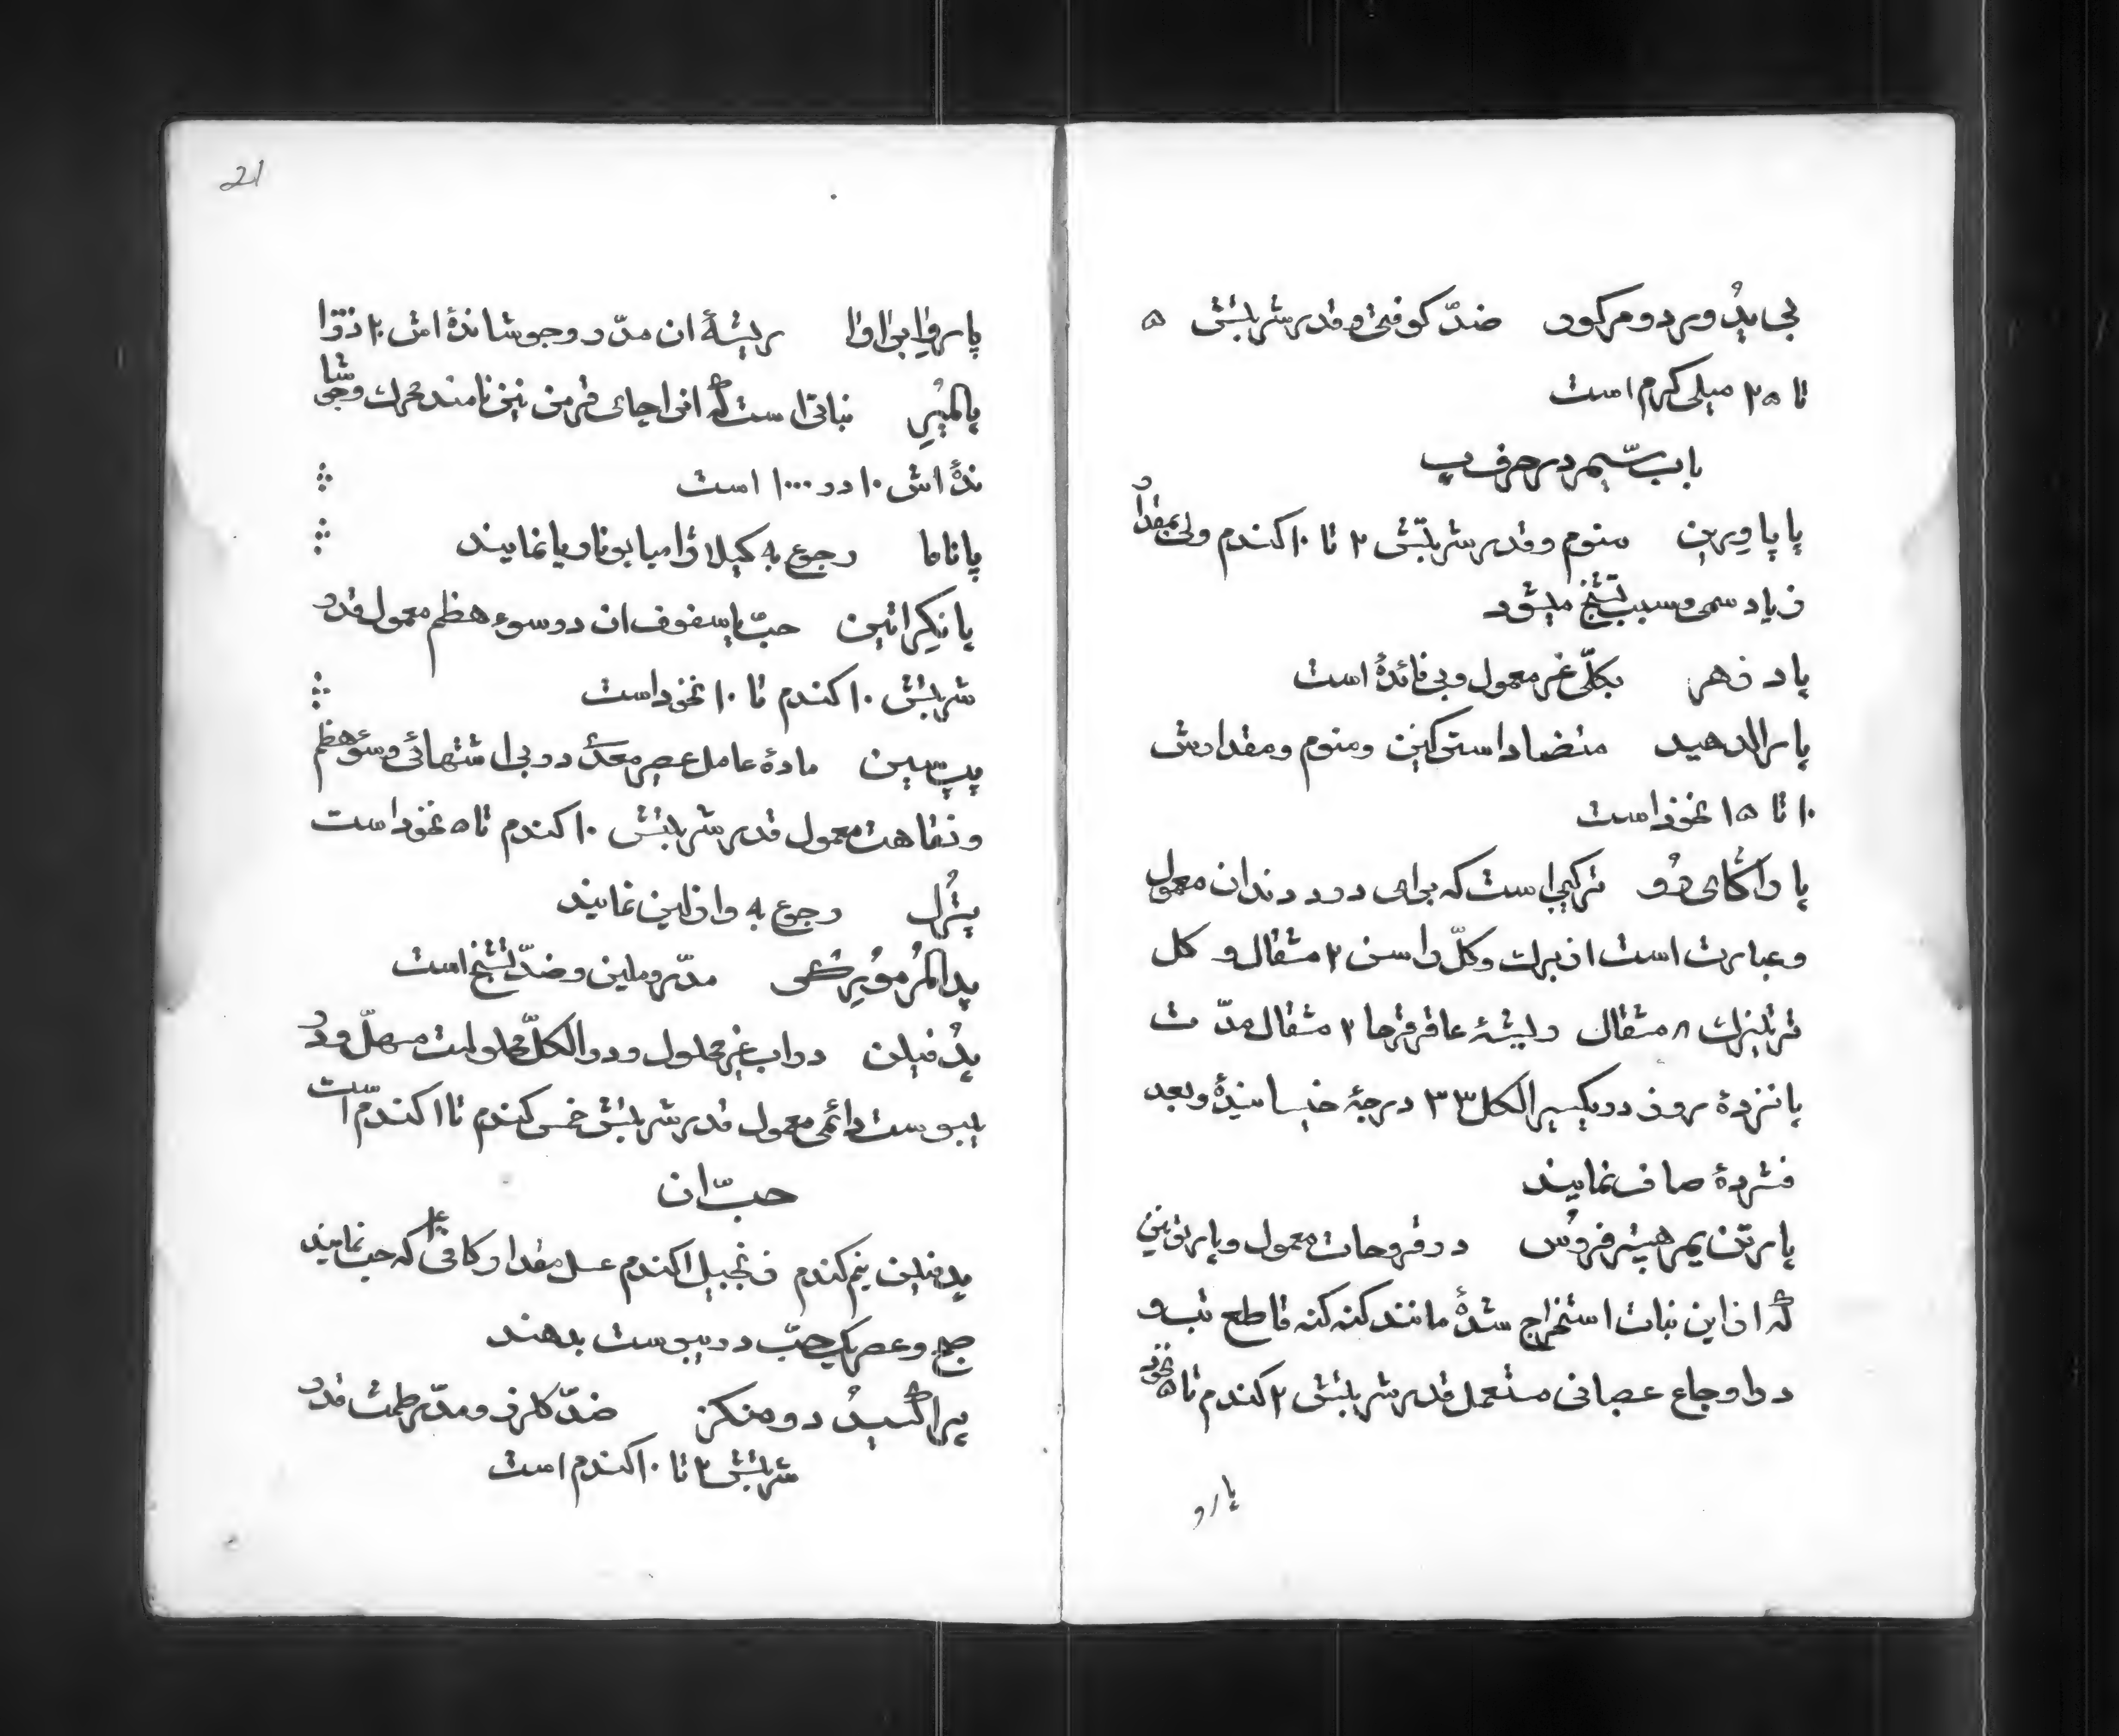 بی یدُ ور دو مرکور ضدّ کوفتی و قدر شربتش ۵
تا ۲۵ میلی کرم است
باب سیّم در حرف پ
پاپاوِرین منوم و قدر شربتش ۲ تا ۱۰ کندم ولی بمقدار
زیاد سمی و سبب تشنّج میشود
پادزهر بکلّی غیر معمول و بی فائدهٔ است
پارالدهید متضاد استرکنین و منوم و مقدارش
۱۰ تا ۱۵ نخود است
پاراگای رُو ترکیبی است که برای درد دندان معمول
و عبارت است از برک و کلّ راسن ۲ مثقال و کل
ترتیزک ۸ مثقال و ریشهٔ عاقرقرحا ۲ مثقال مدّت
پانزدهٔ روز در یکسیر الکل ۳۳ درجهٔ خیسانیدهٔ و بعد
فشردهٔ صاف نمایند
پارتن یم هیتر فروُس در قروحات معمول و پارتی نین
که از این نبات استخراج شدهٔ مانند کنه کنه قاطع تب و
در اوجاع عصبانی مستعمل قدر شربتش ۲ کندم تا ۵ نخود
پارو
21
پاروا براوا ریشهٔ ان مدّر و جوشاندهٔ اش ۲۰ در
پالمیُر نباتی است که انرا چای فرمن نیز نامند محرک و جوشا
ندهٔ اش ۱۰ در ۱۰۰۰ است
پاناما رجوع به کیلا نمایند
پانکراتین حبّ یا سفوف ان در سوء هظم معمول قدر
شربتش ۱۰ کندم تا ۱۰ نخود است
پپسین مادهٔ عامل عصیر معدی در بی اشتهائی و سوء هظم
و نقاهت معمول قدر شربتش ۱۰ کندم تا ۵ نخود است
پترُل رجوع به وازلین نمایند
مدّر و ملین و ضدّ تشنّج است
پدُفیلن در اب غیر محلول و در الکلّ محلولست مسهل و در
یبوست دائمی معمول قدر شربتش خمس کندم تا ۱ کندم است
حبّ ان
پدفیلن نیم کندم زنجبیل ۱ کندم عسل مقدار کافی که حب نمایند
صبح و عصر یک حبّ در یبوست بدهند
ضدّ کلرز و مدّر طمث قدر
شربتش ۲ تا ۱۰ کندم است